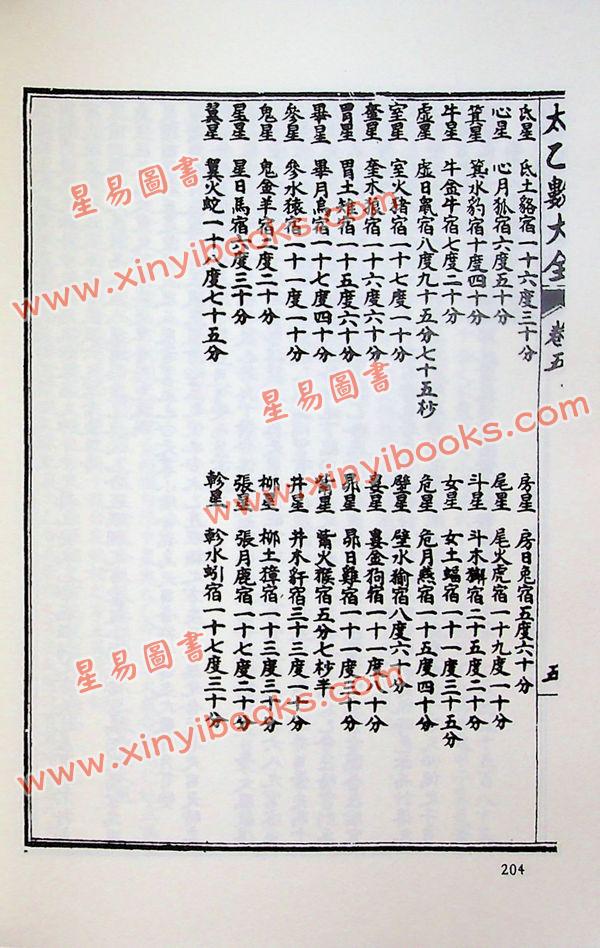 太乙數大全 卷五 五
氐星 氐土貉宿一十六度三十分 房星 房日兔宿五度六十分
心星 心月狐宿六度五十分 尾星 尾火虎宿一十九度一十分
箕星 箕水豹宿十度四十分 斗星 斗木獬宿二十五度二十分
牛星 牛金牛宿七度二十分 女星 女土蝠宿一十一度三十五分
虛星 虛日鼠宿八度九十五分七十五秒 危星 危月燕宿一十五度四十分
室星 室火猪宿一十七度一十分 壁星 壁水㺄宿八度六十分
奎星 奎木狼宿一十六度六十分 婁星 婁金狗宿一十一度十分
胃星 胃土雉宿一十五度六十分 昴星 昴日雞宿一十一度三十分
畢星 畢月烏宿一十七度四十分 觜星 觜火猴宿五分七秒半
參星 參水猿宿一十一度一十分 井星 井木犴宿三十三度一十分
鬼星 鬼金羊宿二度二十分 柳星 柳土獐宿一十三度三十分
星星 星日馬宿六度三十分 張星 張月鹿宿一十七度二十分
翼星 翼火蛇一十八度七十五分 軫星 軫水蚓宿一十七度三十分
204
星易圖書
www.xinyibooks.com
星易圖書
www.xinyibooks.com
星易圖書
www.xinyibooks.com